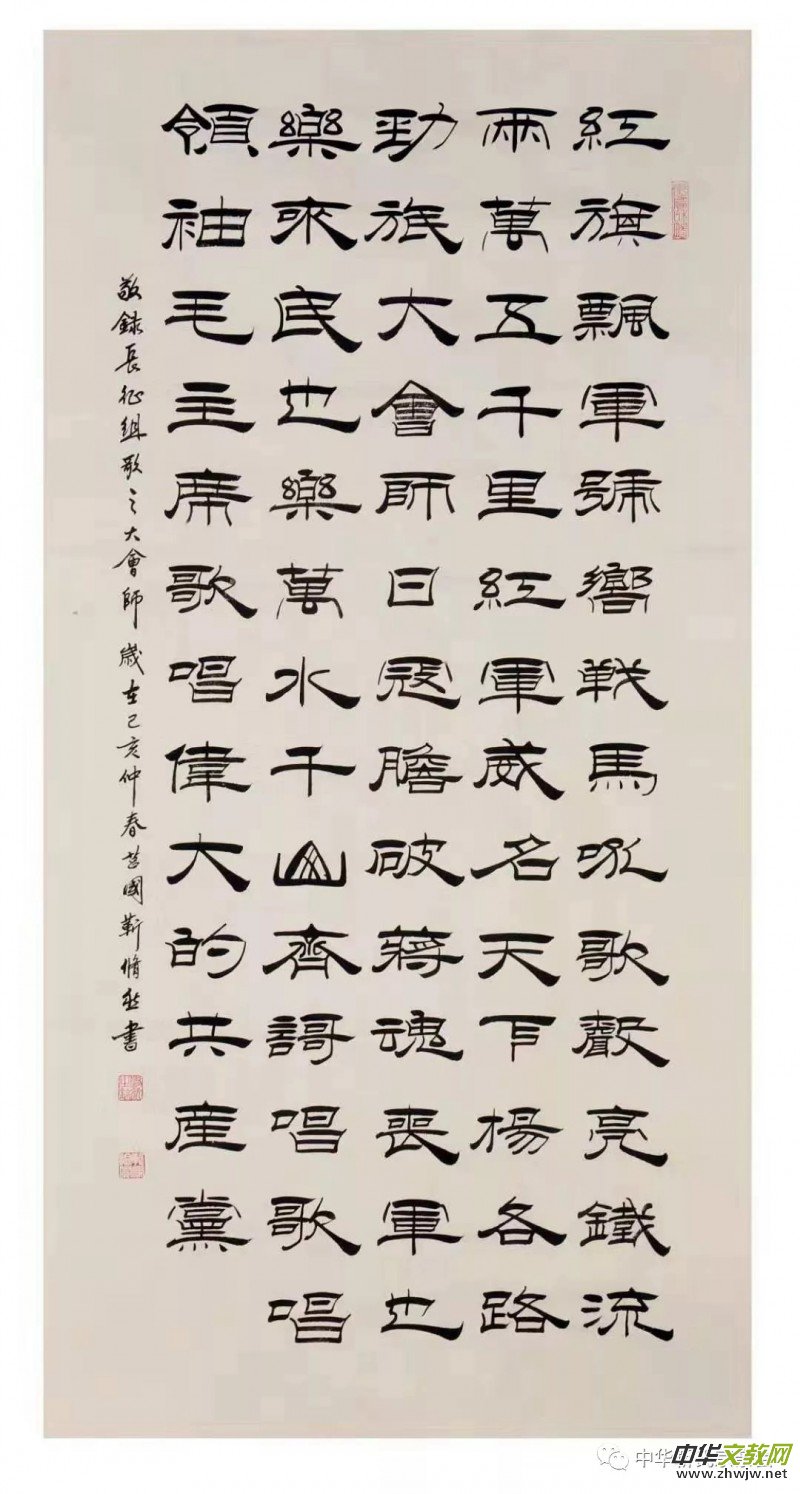 紅旗飄軍號響戰馬吼歌聲亮鐵流
兩萬五千里紅軍威名天下楊各路
勁旅大會師日寇膽破蔣魂喪軍也
樂來民也樂萬水千山齊謌唱歌唱
領袖毛主席歌唱偉大的共産黨
敬錄長征組歌之大會師 歲在己亥仲春國靳脩書
中华
中华文教网
www.zhwjw.net